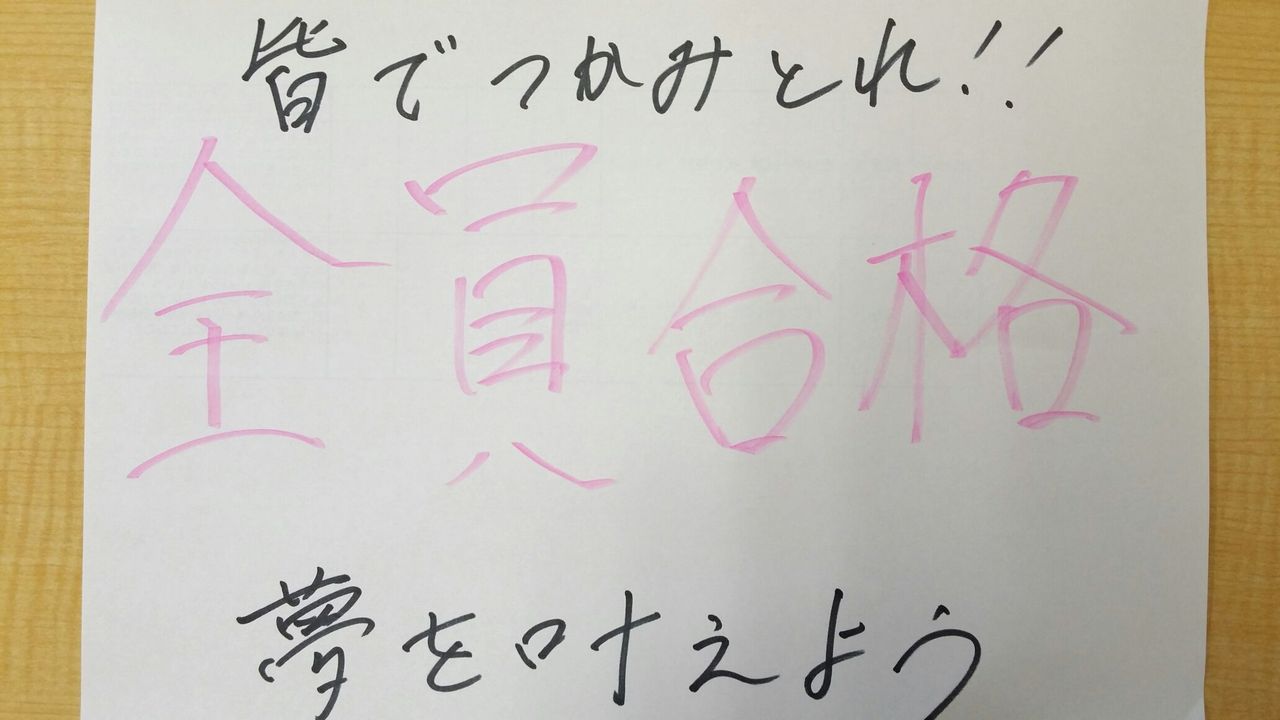 皆でつかみとれ!!
全員合格
夢を叶えよう